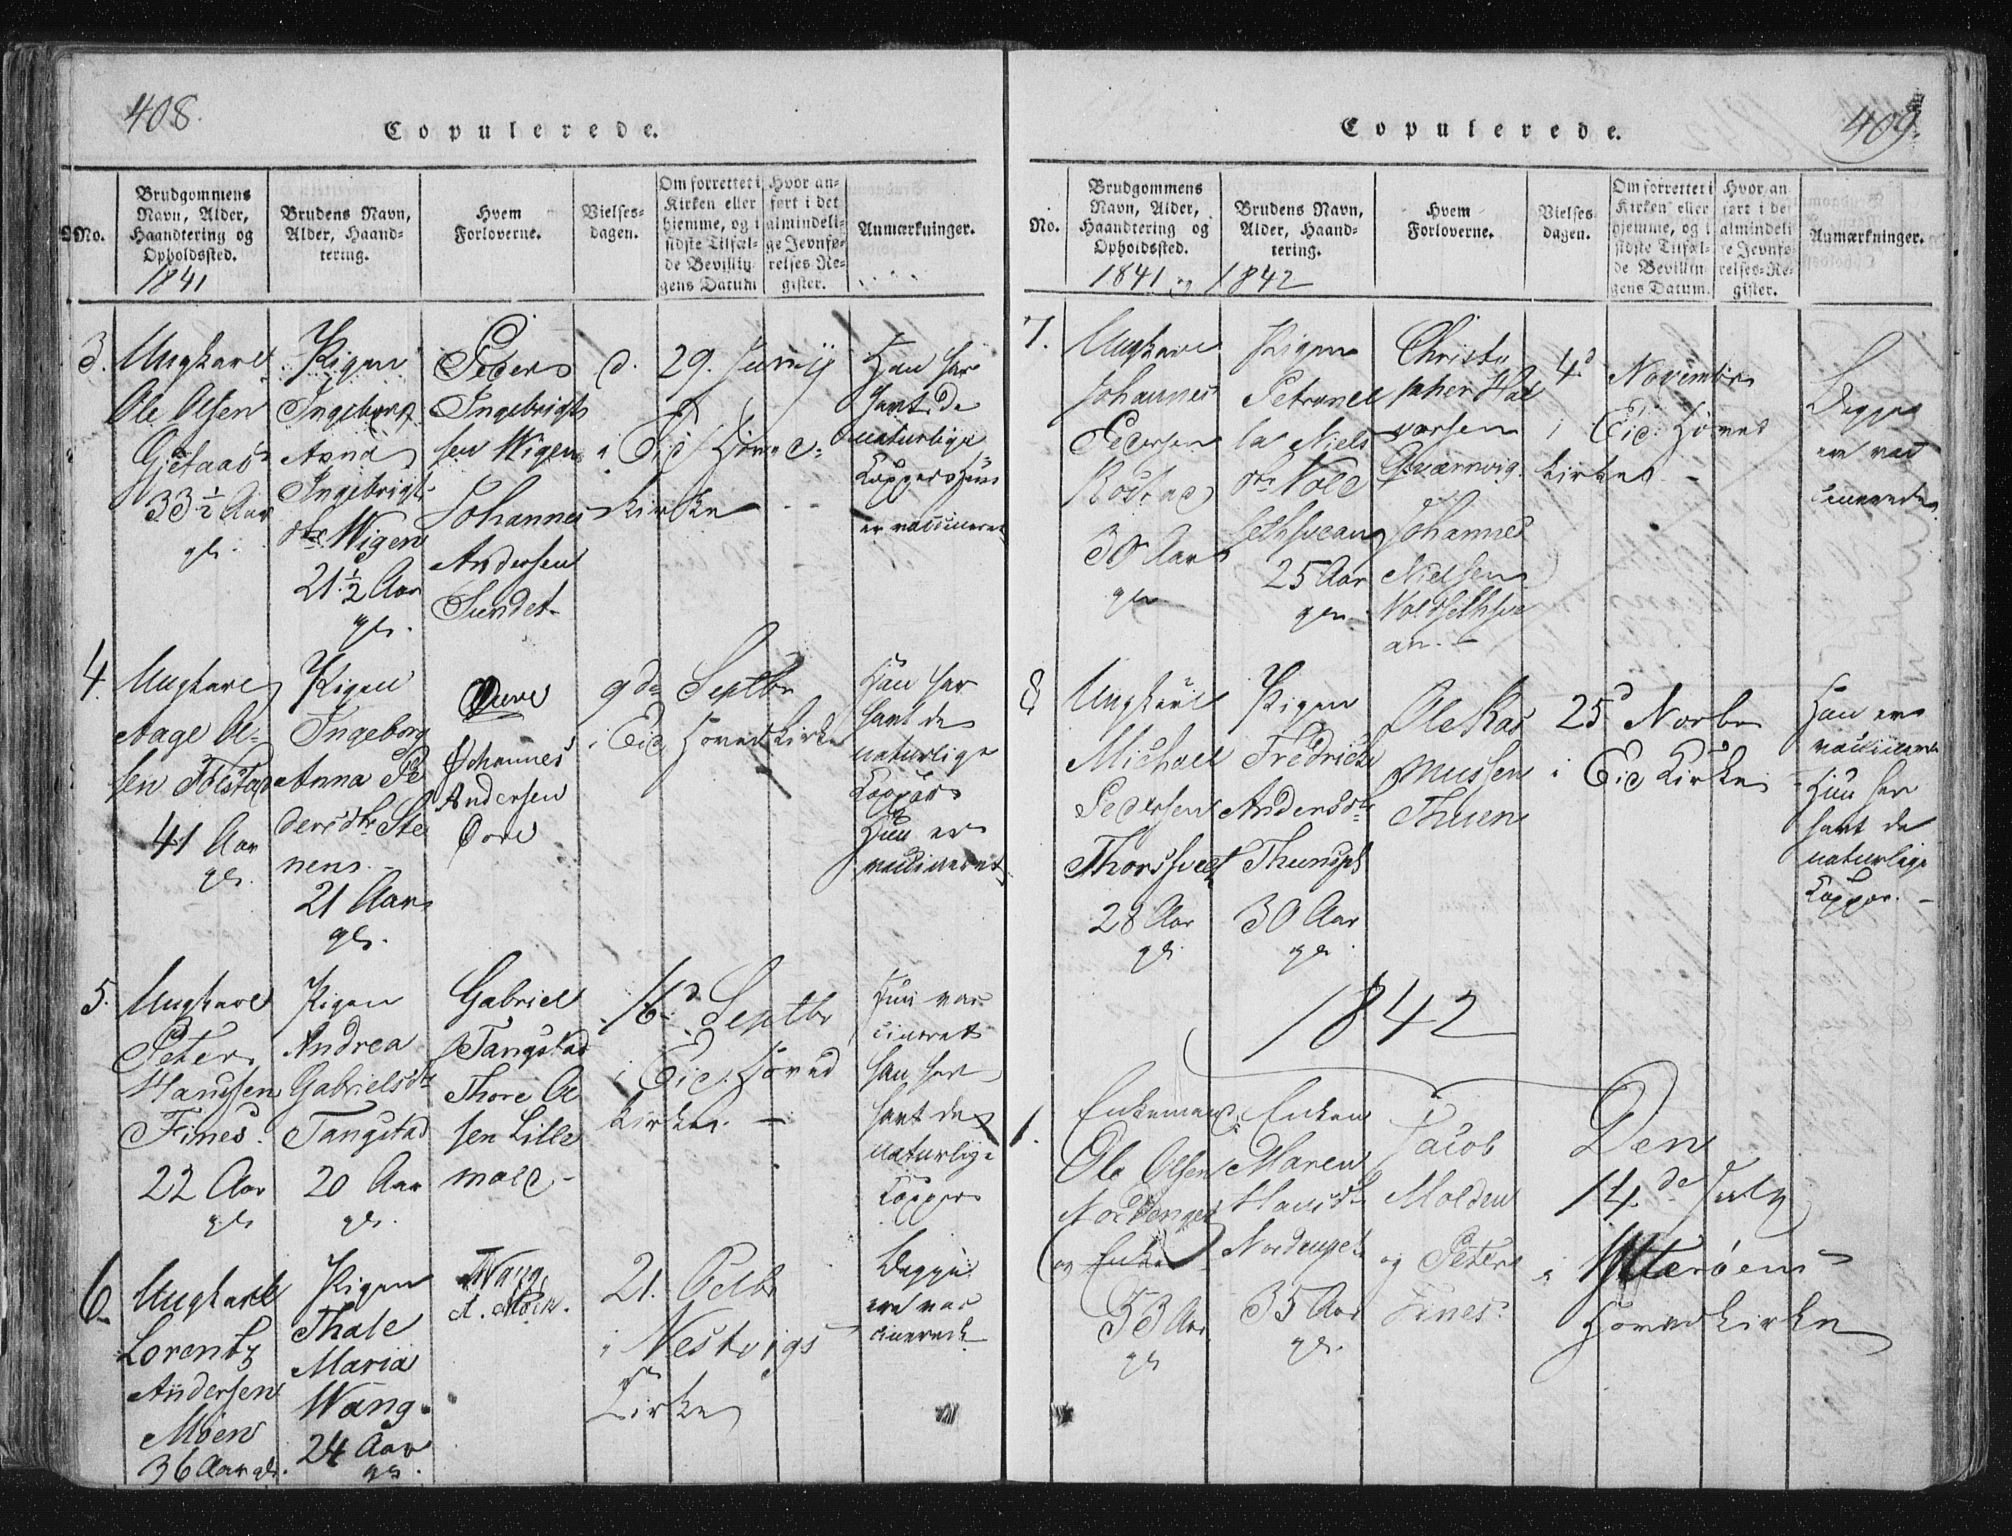 408.
Copulerede.
No.
Brudgommens
Navn, Alder,
Haandtering og
Opholdssted.
1841
Brudens Navn,
Alder, Haand-
tering.
Hvem
Forloverne.
Vielses-
dagen.
Om forrettet i
Kirken eller
hjemme, og i
sidste Tilfæl-
de Bevillin
gens Datum
Hvor an-
ført i det
almindeli-
ge Jevnfø-
relses Re-
gister.
Anmærkninger.
3.
Ungkarl
Ole Olsen
Gjetaas
33 ½ Aar
gl.
Pigen
Ingeborg
Anna
Ingebrigts
dtr Wigen
21 ½ Aar
gl.
Peder
Ingebrigt
sen Wigen
Johannes
Andersen
Sundet
d. 29. Junij
i Eid Hoved-
kirke
Han har
havt de
naturlige
Kopper Hun
er vaccineret
4.
Ungkarl
Aage Ol-
sen Folstad
41 Aar
gl.
Pigen
Ingeborg
Anna Pe
dersdtr Ste
nens
21 Aar
gl.
Johannes
Andersen
9de Septbr
i Eid Hovedkirke
Han har
havt de
naturlige
Kopper
Hun er
vaccineret
5.
Ungkarl
Peter
Hansen
Fines.
22 Aar
gl.
Pigen
Andrea
Gabrielsdtr
Tangstad
20 Aar
gl.
Gabriel
Tangstad
Thore Ol
sen Lille
mold
16d Septbr
i Eid Hoved
kirke.
Hun vac
cineret
han har
havt de
naturlige
Kopper
6
Ungkarl
Lorentz
Andersen
Moen
36 Aar gl.
Pigen
Thale
Maria
Wang.
24 Aar
gl.
Wang
A. Moen.
21. Octbr
i Nestvigs
Kirke
Begge
ere vac
cinerede
409.
Copulerede.
No.
Brudgommens
Navn, Alder,
Haandtering og
Opholdssted.
1841 og 1842
Brudens Navn,
Alder, Haand-
tering.
Hvem
Forloverne.
Vielses
dagen.
Om forrettet i
Kirken eller
hjemme, og i
sidste Tilfæl-
de Bevillin
gens Datum.
Hvor an
ført i de
almindeli
ge Jevnfø-
relses-Re-
gister.
Anmærkninger.
7.
Ungkarl
Johannes
Pedersen
30 Aar
gl.
Pigen
Petronel
la Niels
dtr Vold
selhsvean
25 Aar
gl.
Christo
pher Hal
vorsen
Qværnvig.
Johannes
Nielsen
Voldselhsve
an.
4d November
i Eid Hoved
kirke
Begge
ere vac
cinerede
8
Ungkarl
Michael
Pedersen
Thorshvedt
28 Aar
gl.
Pigen
Fredrick
Andersdtr
30 Aar
gl.
Ole Ras
mussen
Thuen
25d Novbr
i Eid Kirke
Han er
vaccineret
Hun har
havt de
naturlige
Kopper.
1842
1.
Enkemand
Ole Olsen
og Enke
53 Aar
gl.
Enken
Maren
Hansdtr
35 Aar
gl.
Jacob
Molden
og Peter
Fines.
Den
14.de July
i Ytterøens
Hovedkirke